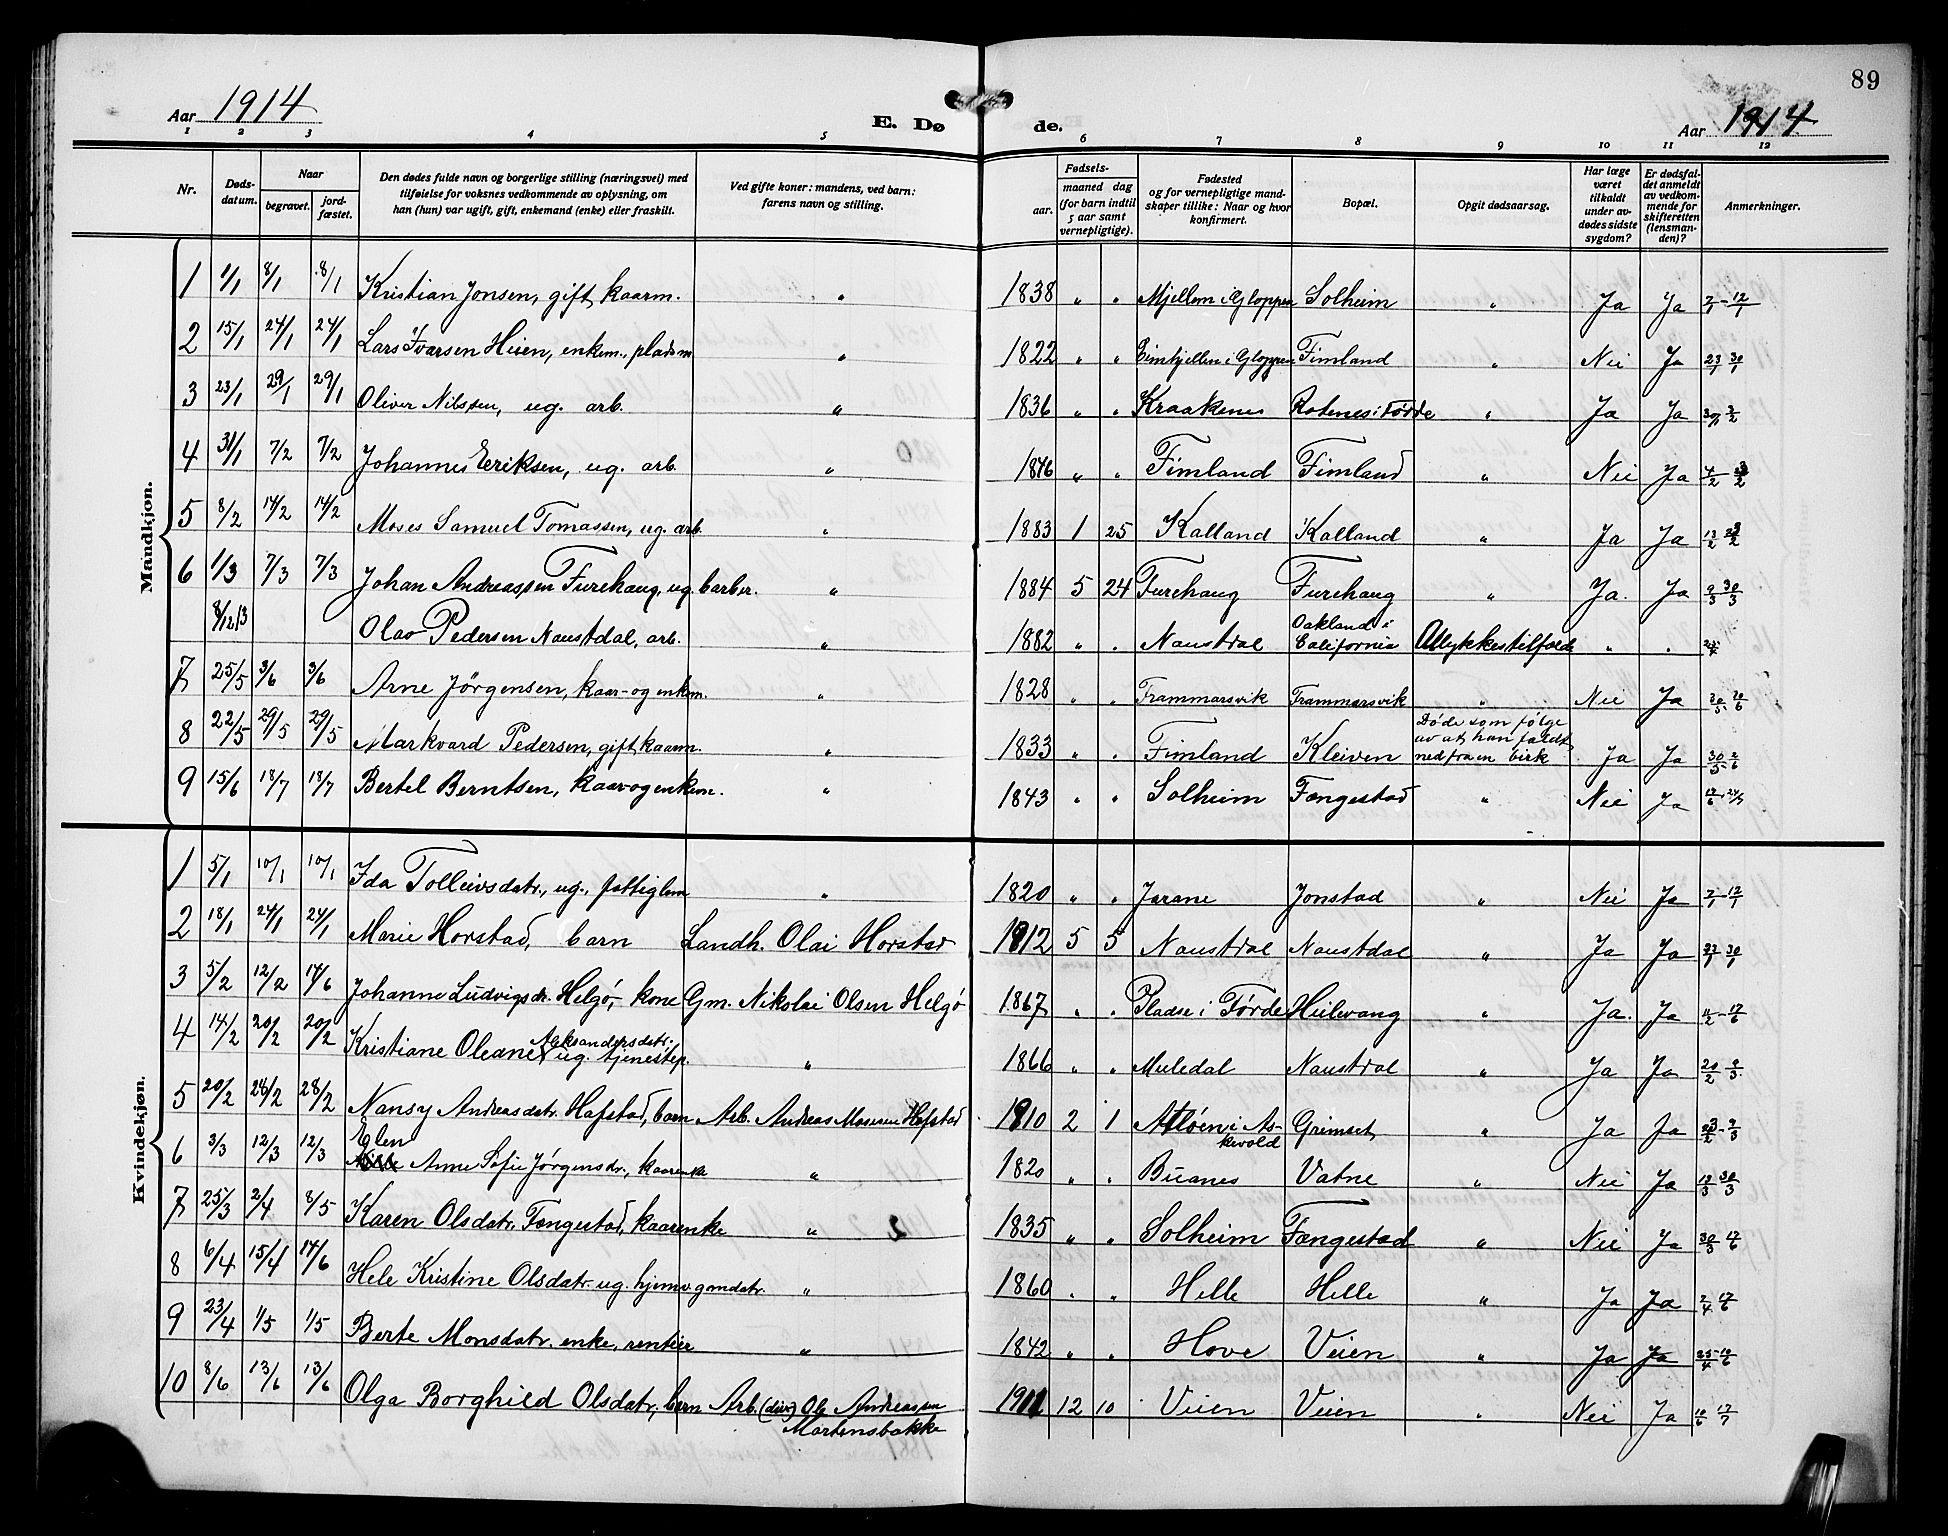 89
Aar 1914 E. Døde. Aar 1914
1 2 3 4 5 6 7 8 9 10 11 12
Nr. | Døds-datum. | Naar begravet. | jord-fæstet. | Den dødes fulde navn og borgerlige stilling (næringsvei) med tilføielse for voksnes vedkommende av oplysning, om han (hun) var ugift, gift, enkemand (enke) eller fraskilt. | Ved gifte koner: mandens, ved barn: farens navn og stilling. | Fødsels- aar. | maaned dag (for barn indtil 5 aar samt vernepligtige). | Fødested og for vernepligtige mandskaper tillike: Naar og hvor konfirmert. | Bopæl. | Opgit dødsaarsag. | Har læge været tilkaldt under avdødes sidste sygdom? | Er dødsfaldet anmeldt av vedkommende for skifteretten (lensmanden)? | Anmerkninger.
Mandkjøn.
1 1/1 8/1 8/1 Kristian Jonsen, gift, kaarm. " 1838 " " Mjellem i Gloppen Solheim " Ja Ja 7/1 - 12/1
2 15/1 24/1 24/1 Lars Ivarsen Heien, enkem., pladsm " 1822 " " Eimhjellen i Gloppen Fimland " Nei Ja 23/1 30/1
3 23/1 29/1 29/1 Oliver Nilssen, ug. arb. " 1836 " " Kraakenes Rotenes i Førde " Ja Ja 30/1 3/2
4 31/1 7/2 7/2 Johannes Eeriksen, ug. arb. " 1846 " " Fimland Fimland " Nei Ja
5 8/2 14/2 14/2 Moses Samuel Tomassen, ug. arb. " 1883 1 25 Kalland Kalland " Ja Ja
6 1/3 7/3 7/3 Johan Andreassen Furehaug, ug. barber. " 1884 5 24 Furehaug Furehaug " Ja. Ja 9/3 30/3
8/12 13 Olav Pedersen Naustdal, arb. " 1882 " " Naustdal Oakland i California Ulykkestilfælde " "
7 25/5 3/6 3/6 Arne Jørgensen, kaar- og enkem. " 1828 " " Frammarsvik Frammarsvik " Nei Ja
8 22/5 29/5 29/5 Markvard Pedersen, gift, kaarm. " 1833 " " Fimland Kleiven Døde som følge av at han faldt ned fra en birk Ja Ja 30/5 - 2/6
9 15/6 18/7 18/7 Bertel Berntsen, kaar og enkem. " 1843 " " Solheim Fængestad " Nei Ja
Kvindekjøn.
1 5/1 10/1 10/1 Ida Tolleivsdatr., ug., fattiglem " 1820 " " Jarane Jonstad " Nei Ja 7/1 - 12/1
2 18/1 24/1 24/1 Marie Horstad, barn Landh. Olai Horstad 1912 5 5 Naustdal Naustdal " Ja Ja 23/1 30/1
3 5/2 12/2 14/6 Johanne Ludvigsdr. Helgø, kone Gm. Nikolai Olsen Helgø 1867 " " Pladse i Førde Heilevang " Ja. Ja 11/2 - 17/6
4 14/2 20/2 20/2 Kristiane Oleane Aleksandersdatr. ug. tjenestep. " 1866 " " Muledal Naustdal " Ja Ja 20/2 9/3
5 20/2 28/2 28/2 Nansy Andreasdatr. Hafstad, barn Arb. Andreas Mosesen Hafstad 1910 2 1 Atløen i Askevold Grimset " Ja Ja 23/2 - 9/3
6 3/3 12/3 12/3 Elen Anne Sofie Jørgensdr., kaarenke " 1820 " " Buanes Vatne " Nei Ja 19/3 30/3
7 25/3 2/4 8/5 Karen Olsdatr. Fængestad, kaarenke " 1835 " " Solheim Fængestad " Nei Ja 30/3 17/6
8 6/4 15/4 14/6 Hele Kristine Olsdatr. ug. hjemv. gmdatr. " 1860 " " Helle Helle " Ja Ja 7/4 17/6
9 23/4 1/5 1/5 Berte Monsdatr. enke, rentier " 1842 " " Hove Veien " Ja Ja
10 8/6 13/6 13/6 Olga Borghild Olsdatr., barn Arb. (div) Ole Andreassen Martensbakke 1911 12 10 Veien Veien " Nei Ja 10/6 17/7